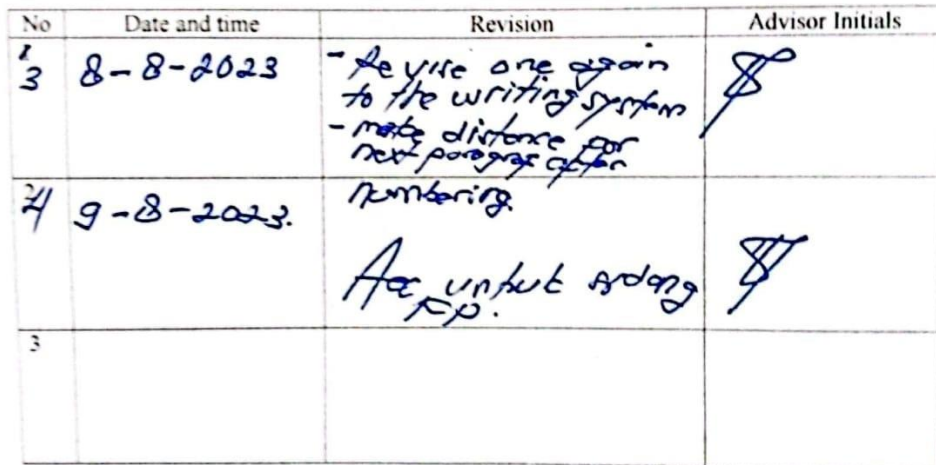 No Date and time Revision Advisor Initials
1
3 8-8-2023 - Revise one again
to the writing system
- make distance for
next paragraf after
numbering.
2
4 9-8-2023.
Acc untuk sidang
FP.
3